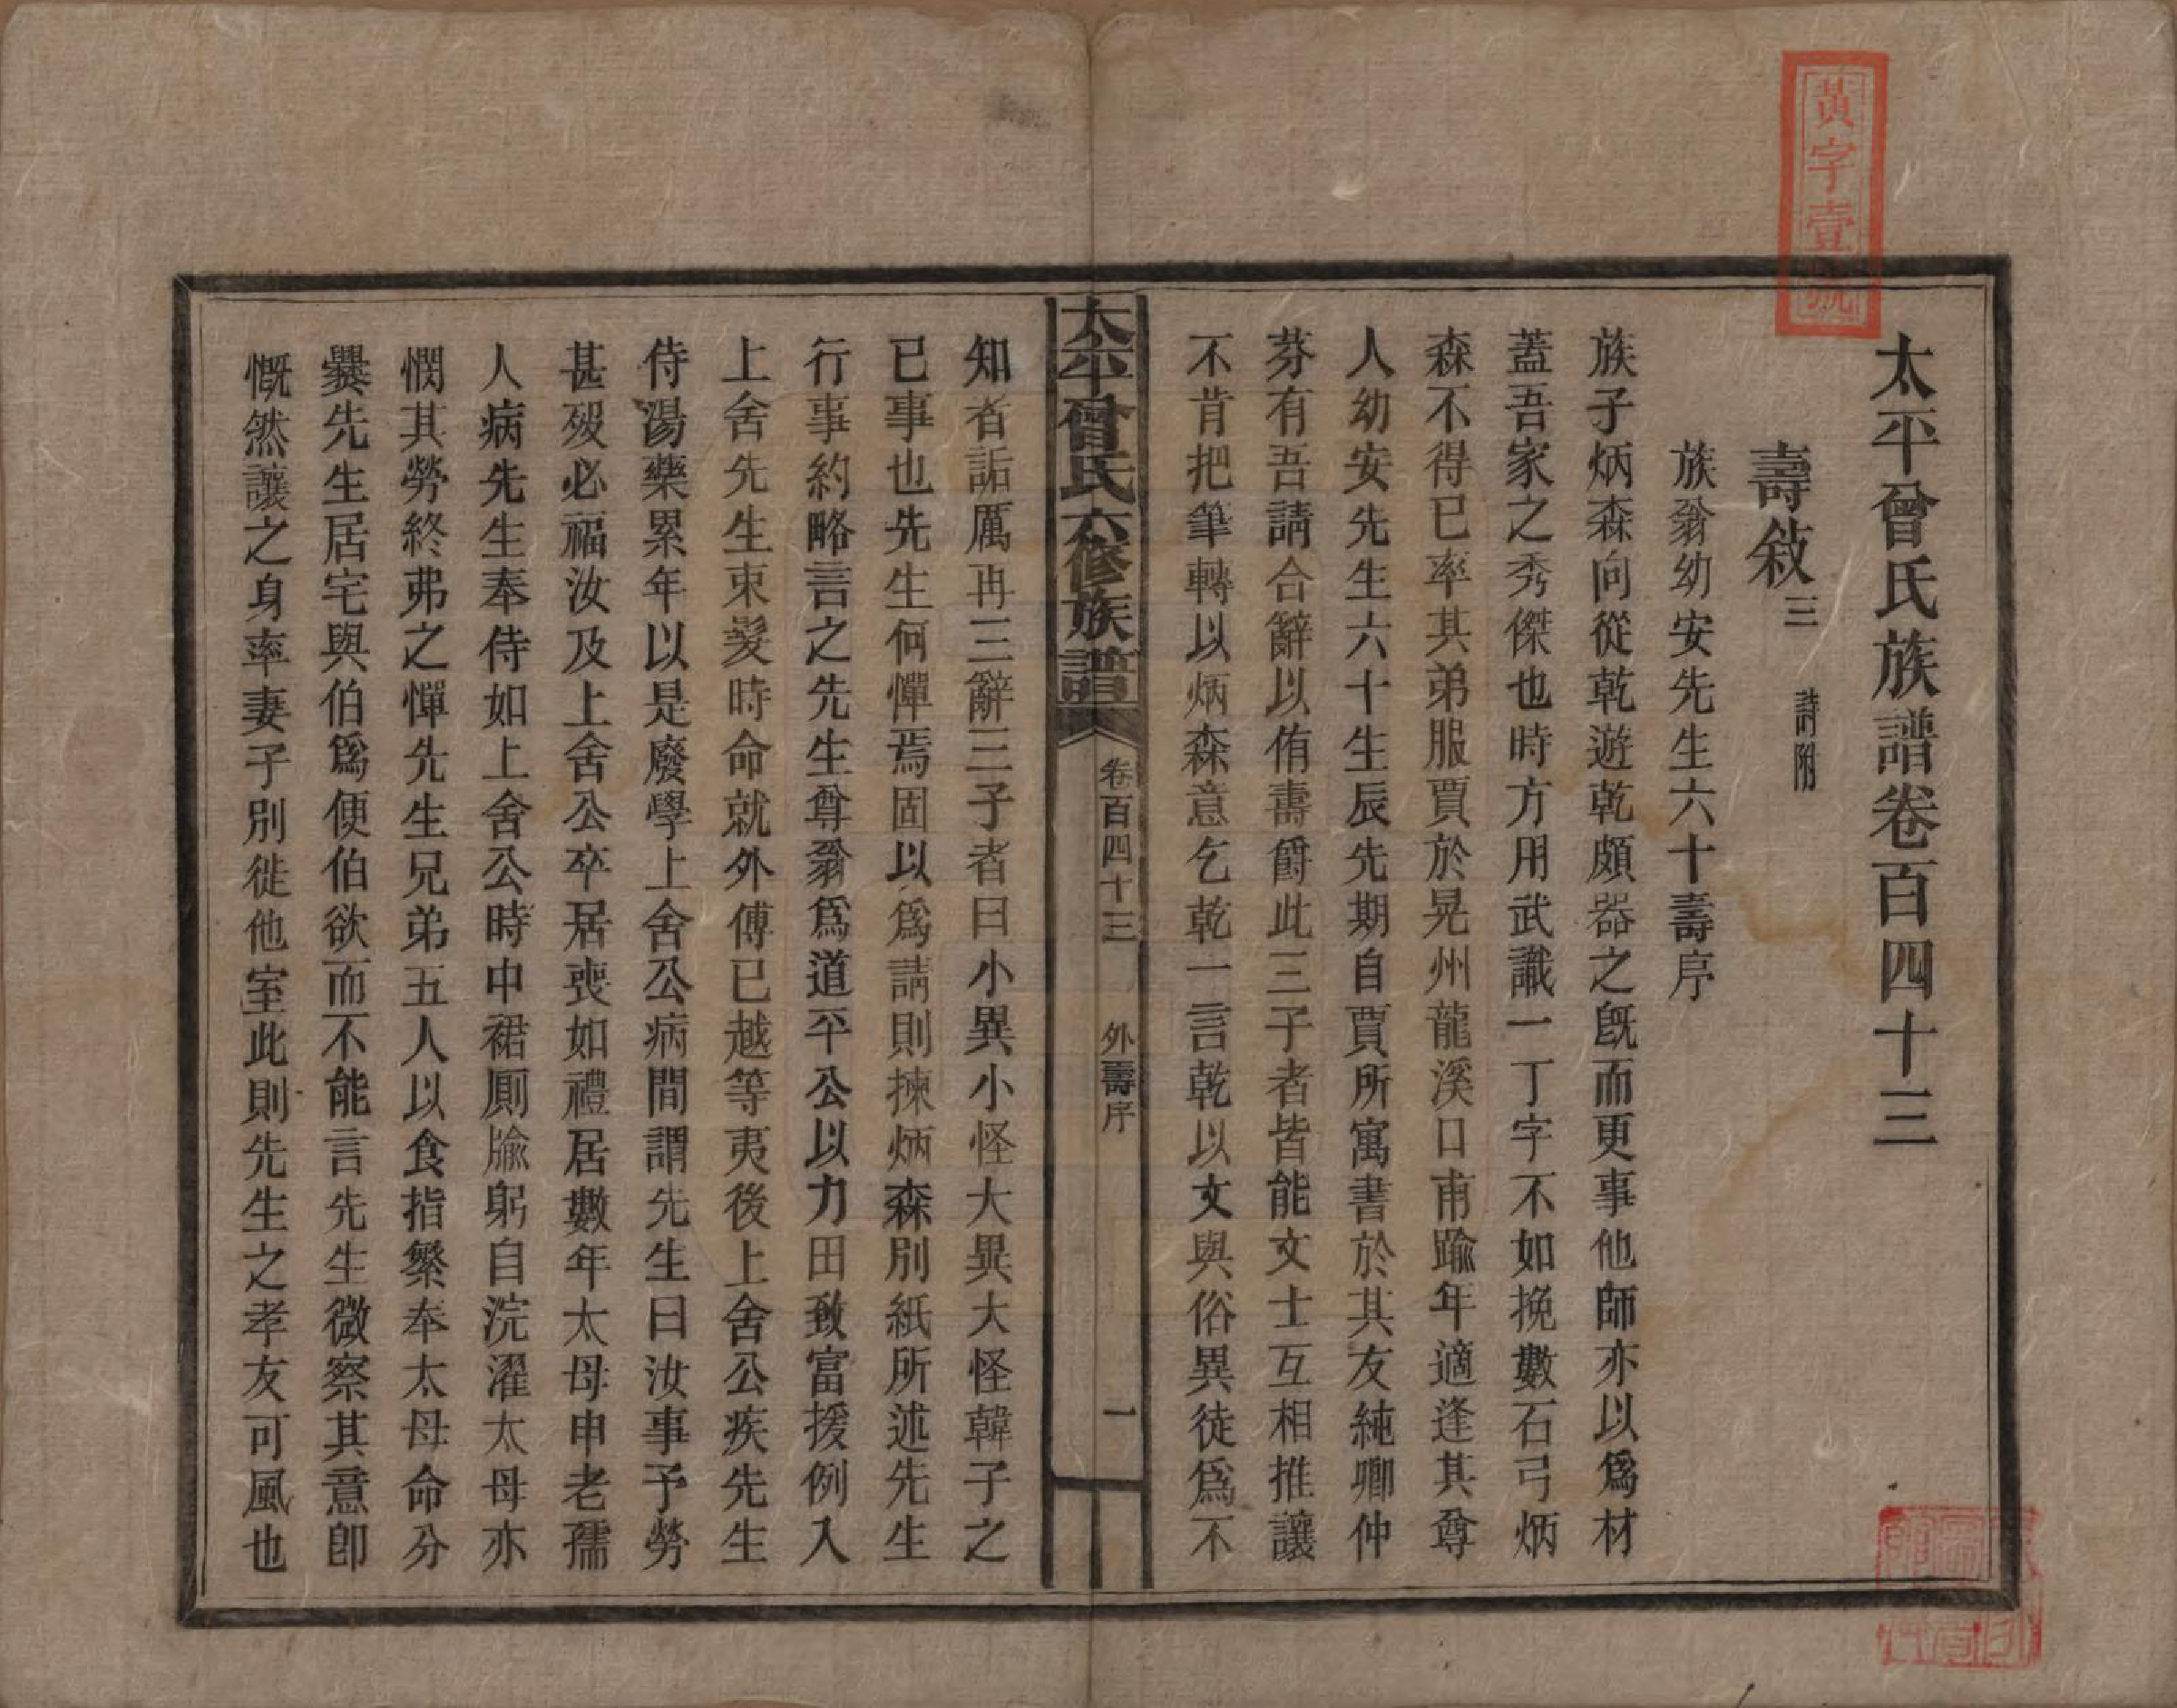 黃字壹號
太平曾氏族譜卷百四十三
壽敍三 詩附
族翁幼安先生六十壽序
族子炳森向從乾遊乾頗器之旣而更事他師亦以爲材
蓋吾家之秀傑也時方用武議一丁字不如挽數石弓炳
森不得已率其弟服賈於晃州龍溪口甫踰年適逢其尊
人幼安先生六十生辰先期自賈所寓書於其友純卿仲
芬有吾請合辭以侑壽爵此三子者皆能文士互相推讓
不肯把筆轉以炳森意乞乾一言乾以文與俗異徒爲不
太平曾氏六修族譜 卷百四十三 外壽序 一
知者詬厲再三辭三子者曰小異小怪大異大怪韓子之
已事也先生何憚焉固以爲請則揀炳森別紙所述先生
行事約略言之先生尊翁爲道平公以力田致富援例入
上舍先生束髮時命就外傅已越等夷後上舍公疾先生
侍湯藥累年以是廢學上舍公病間謂先生曰汝事予勞
甚歿必福汝及上舍公卒居喪如禮居數年太母申老孺
人病先生奉侍如上舍公時中裙厠牏躬自浣濯太母亦
憫其勞終弗之憚先生兄弟五人以食指繁奉太母命分
爨先生居宅與伯爲便伯欲而不能言先生微察其意卽
慨然讓之身率妻子別徙他室此則先生之孝友可風也